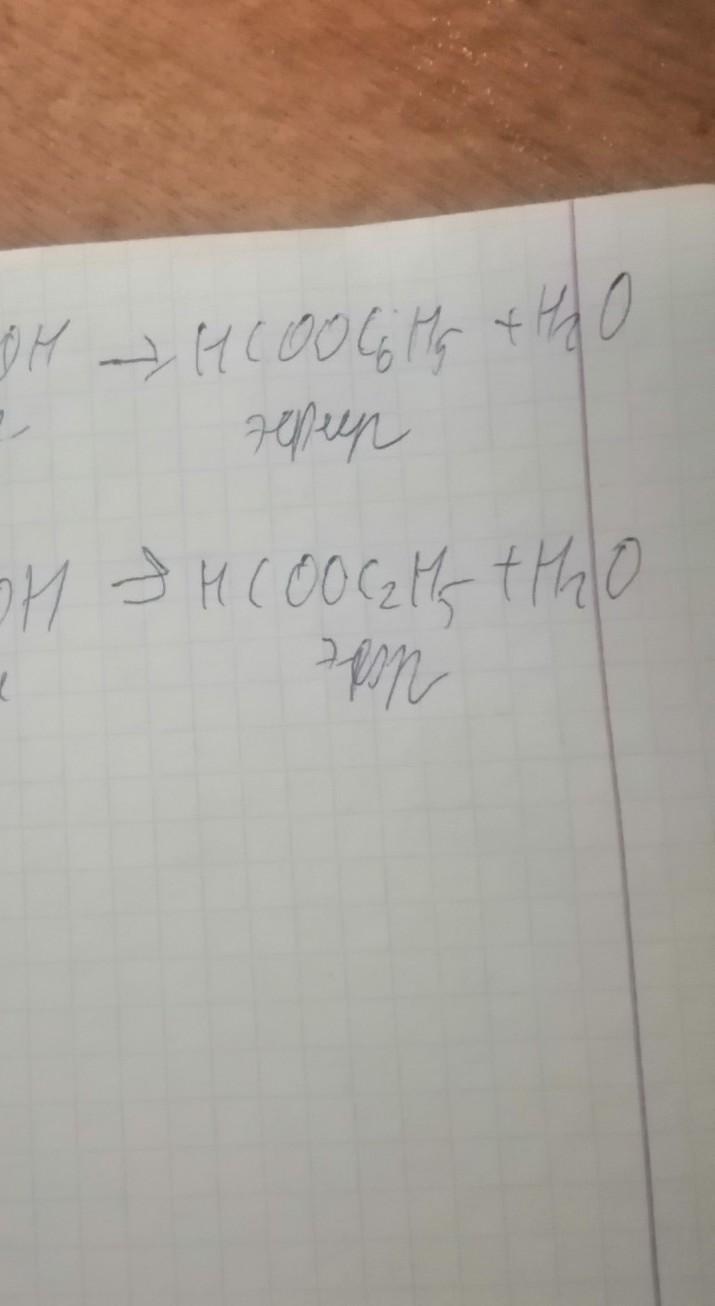 OH → HCOOC₆H₅ + H₂O
эфир
OH → HCOOC₂H₅ + H₂O
эфир